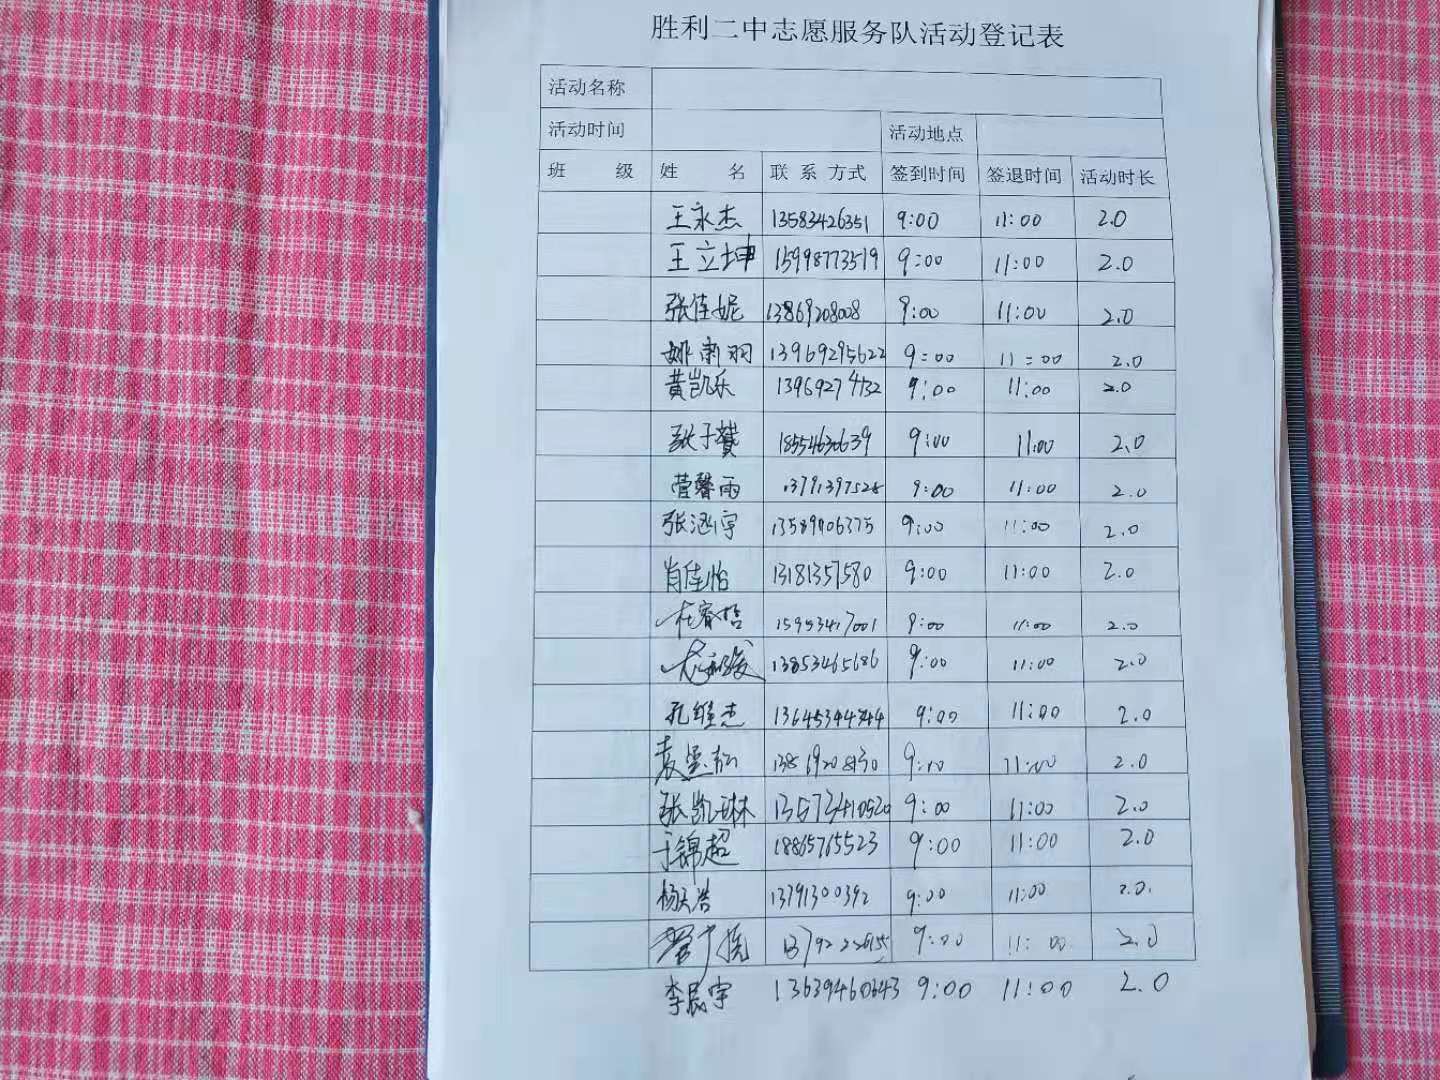 胜利二中志愿服务队活动登记表
活动名称
活动时间 活动地点
班 级 姓 名 联 系 方式 签到时间 签退时间 活动时长
王永杰 13583426351 9:00 11:00 2.0
王立坤 15998773519 9:00 11:00 2.0
张佳妮 13869208008 9:00 11:00 2.0
姚雨羽 13969295622 9:00 11:00 2.0
黄凯乐 13969274132 9:00 11:00 2.0
张子赟 18554630639 9:00 11:00 2.0
馨雨 13791397528 9:00 11:00 2.0
张涵宇 13589906375 9:00 11:00 2.0
肖佳怡 13181357580 9:00 11:00 2.0
睿哲 15953417001 9:00 11:00 2.0
13853465686 9:00 11:00 2.0
孔维杰 13645344344 9:00 11:00 2.0
袁 13869208130 9:00 11:00 2.0
张凯琳 13573410520 9:00 11:00 2.0
于锦超 18865765523 9:00 11:00 2.0
杨天浩 13791300392 9:00 11:00 2.0
9:00 11:00 2.0
李晨宇 13639460643 9:00 11:00 2.0